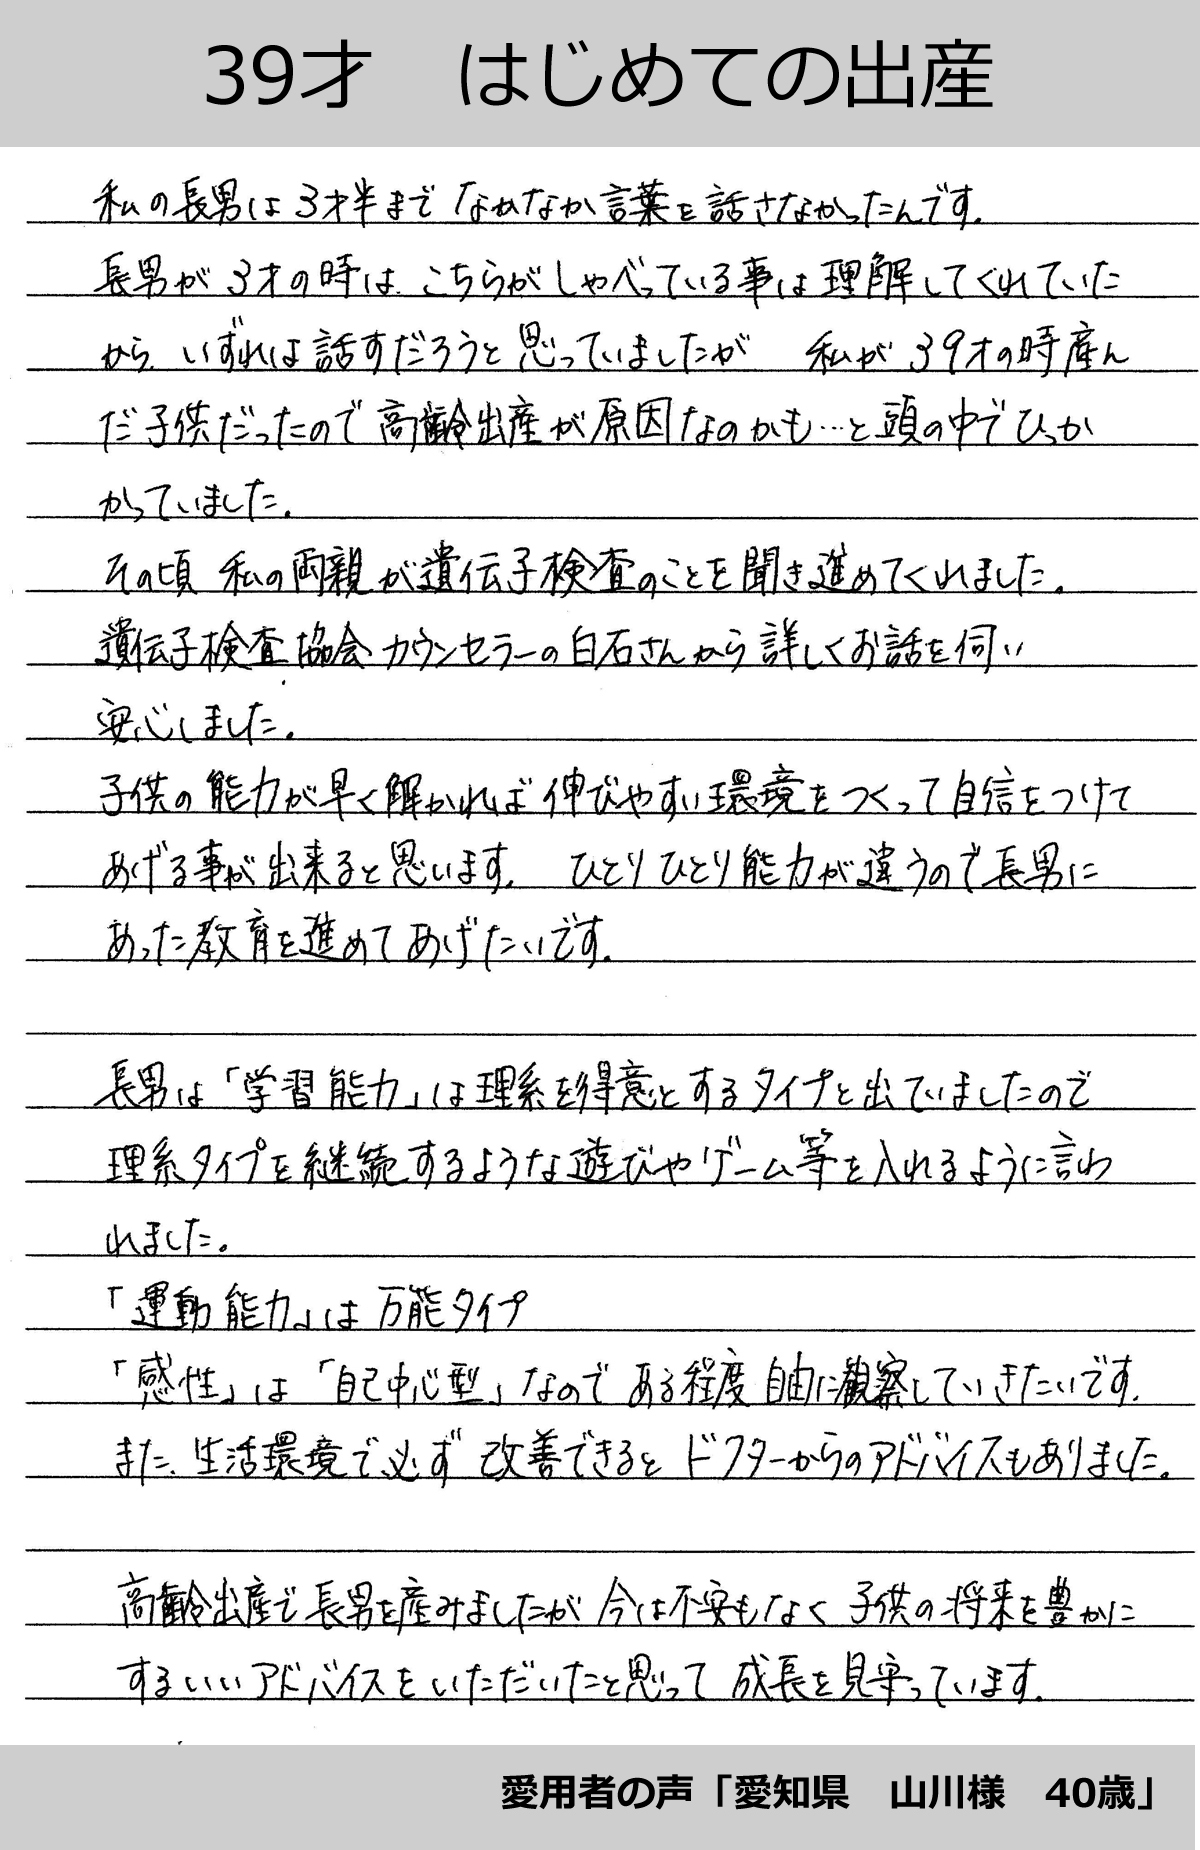 39才　はじめての出産
私の長男は3才半まで なかなか言葉を話さなかったんです。
長男が 3才の時は、こちらがしゃべっている事は理解してくれていた
から、いずれは話すだろうと思っていましたが　私が39才の時産ん
だ子供だったので高齢出産が原因なのかも…と頭の中でひっか
かっていました。
その頃 私の両親が遺伝子検査のことを聞き進めてくれました。
遺伝子検査協会カウンセラーの白石さんから詳しくお話を伺い
安心しました。
子供の能力が早く解かれば伸びやすい環境をつくって自信をつけて
あげる事が出来ると思います。 ひとりひとり能力が違うので長男に
あった教育を進めてあげたいです。
長男は「学習能力」は理系を得意とするタイプと出ていましたので
理系タイプを継続するような遊びやゲーム等を入れるように言わ
れました。
「運動能力」は万能タイプ
「感性」は「自己中心型」なので ある程度自由に観察していきたいです。
また、生活環境で必ず改善できると ドクターからのアドバイスもありました。
高齢出産で長男を産みましたが 今は不安もなく 子供の将来を豊かに
するいいアドバイスをいただいたと思って 成長を見守っています。
愛用者の声「愛知県　山川様　40歳」